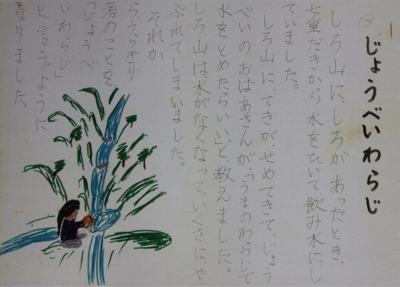 じょうべいわらじ
しろ山に、しろが、あったとき、
七重だきから水をひいて、飲み水にし
ていました。
しろ山に、てきが、せめてきて、じょう
べいのおばあさんが、「うまのわらじで
水をとめたらいい」と、教えました。
しろ山は水がなくなって、いくさにや
ぶれてしまいました。
それか
らうらぎり
者のことを
「じょうべ
いわらじ」
と言うように
なりました。